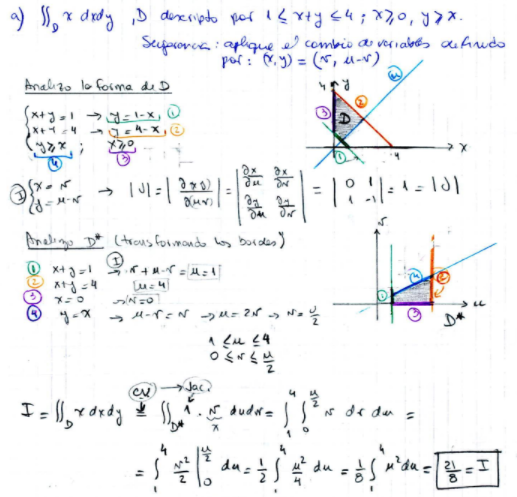 a) ∬_D x dxdy, D descripto por 1 ≤ x+y ≤ 4; x ≥ 0, y ≥ x.
Sugerencia: aplique el cambio de variables definido
por: (x,y) = (v, u-v)
Analizo la forma de D
{ x+y=1 → y=1-x, ①
x+y=4 → y=4-x, ②
y ≥ x ; x ≥ 0
④ ③
4 y u
③ ② D
① 4 x
Ⓘ { x = v
y = u-v → |J| = |∂(x,y)/∂(u,v)| = |∂x/∂u ∂x/∂v; ∂y/∂u ∂y/∂v| = |0 1; 1 -1| = 1 = |J|
Analizo D* (transformando los bordes)
① x+y=1 →Ⓘ v+u-v = u=1
② x+y=4 u=4
③ x=0 → v=0
④ y=x → u-v=v → u=2v → v=u/2
v
① ④ ②
③ u
D*
1 ≤ u ≤ 4
0 ≤ v ≤ u/2
CV → Jac.
I = ∬_D x dxdy = ∬_D* 1 · v dudv = ∫₁⁴ ∫₀^{u/2} v dv du =
x
= ∫₁⁴ v²/2 |₀^{u/2} du = 1/2 ∫₁⁴ u²/4 du = 1/8 ∫₁⁴ u² du = 21/8 = I